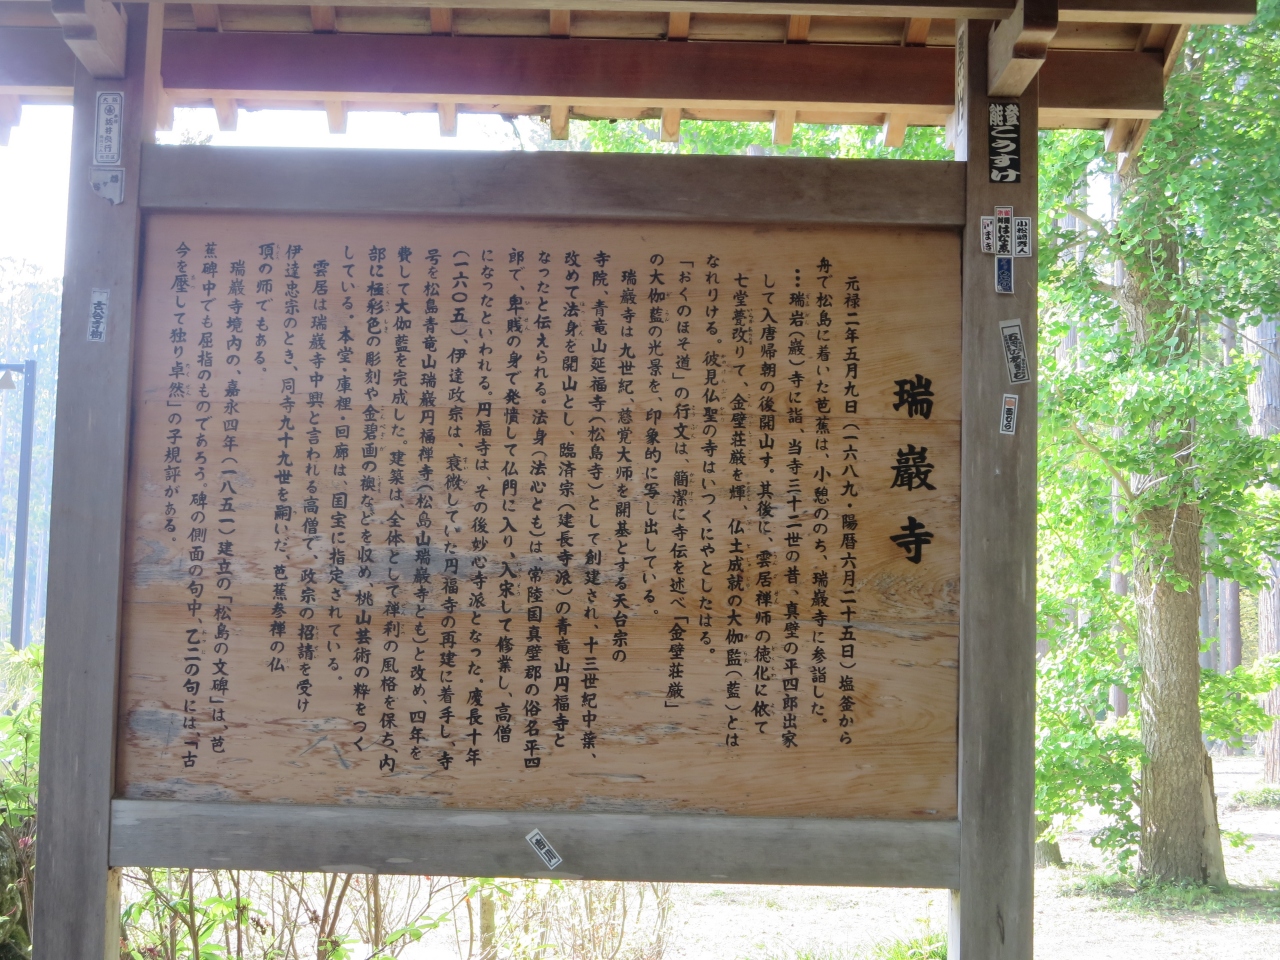 瑞巖寺
元禄二年五月九日(一六八九・陽暦六月二十五日)塩釜から
舟で松島に着いた芭蕉は、小憩ののち、瑞巌寺に参詣した。
…瑞岩(巌)寺に詣、当寺三十二世の昔、真壁の平四郎出家
して入唐帰朝の後開山す。其後に、雲居禅師の徳化に依て
七堂甍改りて、金壁荘厳を輝、仏土成就の大伽監(藍)とは
なれりける。彼見仏聖の寺はいつくにやとしたはる。
「おくのほそ道」の行文は、簡潔に寺伝を述べ「金壁荘厳」
の大伽藍の光景を、印象的に写し出している。
瑞巌寺は九世紀、慈覚大師を開基とする天台宗の
寺院、青竜山延福寺(松島寺)として創建され、十三世紀中葉、
改めて法身を開山とし、臨済宗(建長寺派)の青竜山円福寺と
なったと伝えられる。法身(法心とも)は、常陸国真壁郡の俗名平四
郎で、卑賎の身で発憤して仏門に入り、入宋して修業し、高僧
になったといわれる。円福寺は、その後妙心寺派となった。慶長十年
(一六〇五)、伊達政宗は、衰微していた円福寺の再建に着手し、寺
号を松島青竜山瑞巌円福禅寺(松島山瑞巌寺とも)と改め、四年を
費して大伽藍を完成した。建築は全体として禅利の風格を保ち、内
部に極彩色の彫刻や金碧画の襖などを収め、桃山芸術の粋をつく
している。本堂・庫裡・回廊は、国宝に指定されている。
雲居は瑞巌寺中興と言われる高僧で、政宗の招請を受け
伊達忠宗のとき、同寺九十九世を嗣いだ、芭蕉参禅の仏
頂の師でもある。
瑞巌寺境内の、嘉永四年(一八五一)建立の「松島の文碑」は、芭
蕉碑中でも屈指のものであろう。碑の側面の句中、乙二の句には、「古
今を壓して独り卓然」の子規評がある。
能登
こうすけ
小松崎秀人
はな家